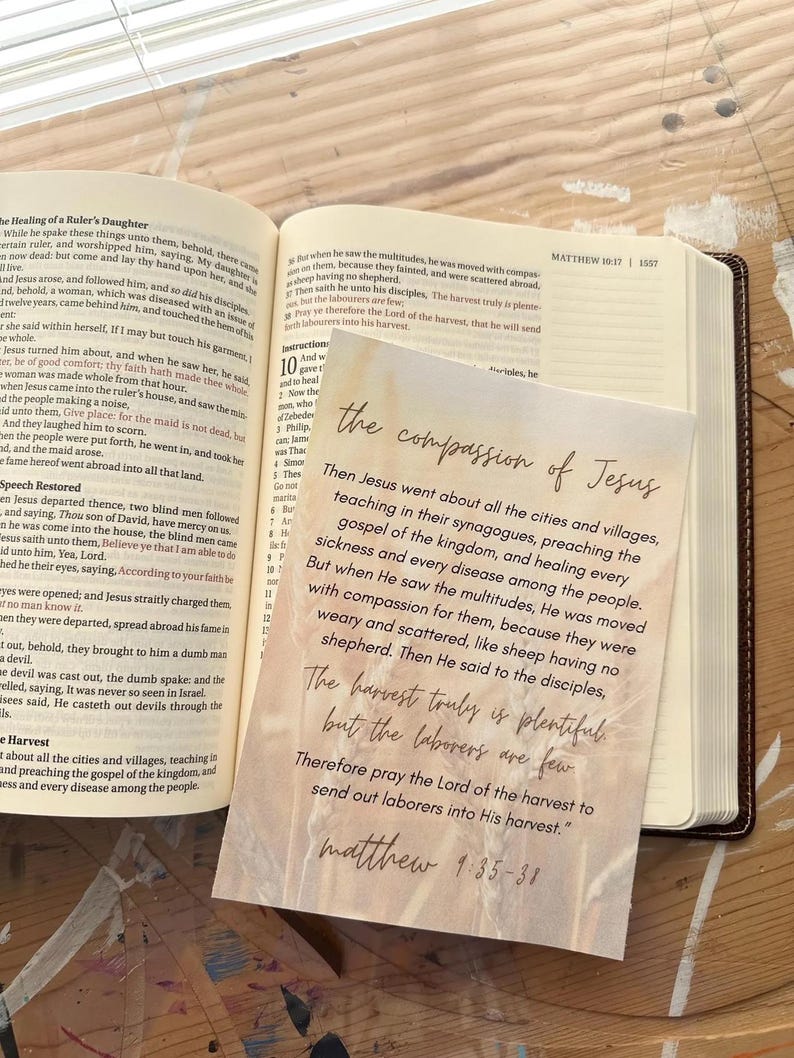 he Healing of a Ruler's Daughter
While he spake these things unto them, behold, there came
certain ruler, and worshipped him, saying, My daughter is
en now dead: but come and lay thy hand upon her, and she
ll live.
And Jesus arose, and followed him, and so did his disciples.
nd, behold, a woman, which was diseased with an issue of
d twelve years, came behind him, and touched the hem of his
ent:
r she said within herself, If I may but touch his garment, I
be whole.
Jesus turned him about, and when he saw her, he said,
ter, be of good comfort; thy faith hath made thee whole.
e woman was made whole from that hour.
when Jesus came into the ruler's house, and saw the min-
d the people making a noise,
aid unto them, Give place: for the maid is not dead, but
. And they laughed him to scorn.
hen the people were put forth, he went in, and took her
nd, and the maid arose.
e fame hereof went abroad into all that land.
Speech Restored
en Jesus departed thence, two blind men followed
, and saying, Thou son of David, have mercy on us.
en he was come into the house, the blind men came
Jesus saith unto them, Believe ye that I am able to do
aid unto him, Yea, Lord.
hed he their eyes, saying, According to your faith be
eyes were opened; and Jesus straitly charged them,
at no man know it.
hen they were departed, spread abroad his fame in
y.
t out, behold, they brought to him a dumb man
a devil.
he devil was cast out, the dumb spake: and the
velled, saying, It was never so seen in Israel.
isees said, He casteth out devils through the
ils.
e Harvest
t about all the cities and villages, teaching in
and preaching the gospel of the kingdom, and
ness and every disease among the people.
MATTHEW 10:17 | 1557
36 But when he saw the multitudes, he was moved with compas-
sion on them, because they fainted, and were scattered abroad,
as sheep having no shepherd.
37 Then saith he unto his disciples, The harvest truly is plente-
ous, but the labourers are few;
38 Pray ye therefore the Lord of the harvest, that he will send
forth labourers into his harvest.
Instructions
10 And w
gave t
disciples, he
and to heal
2 Now the
mon, who
of Zebedee
3 Philip,
can; Jame
was Thad
4 Simo
5 Thes
Go not
marita
6 But
7 An
8 He
ils: fr
9 P
10 N
nor
11
12
13
the compassion of Jesus
Then Jesus went about all the cities and villages,
teaching in their synagogues, preaching the
gospel of the kingdom, and healing every
sickness and every disease among the people.
But when He saw the multitudes, He was moved
with compassion for them, because they were
weary and scattered, like sheep having no
shepherd. Then He said to the disciples,
The harvest truly is plentiful,
but the laborers are few.
Therefore pray the Lord of the harvest to
send out laborers into His harvest."
matthew 9:35-38